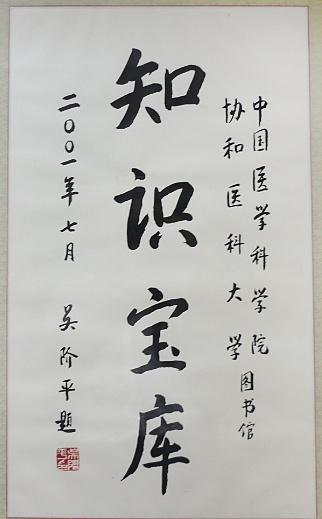 中国医学科学院
协和医科大学图书馆
知识宝库
二〇〇一年七月 吴阶平题